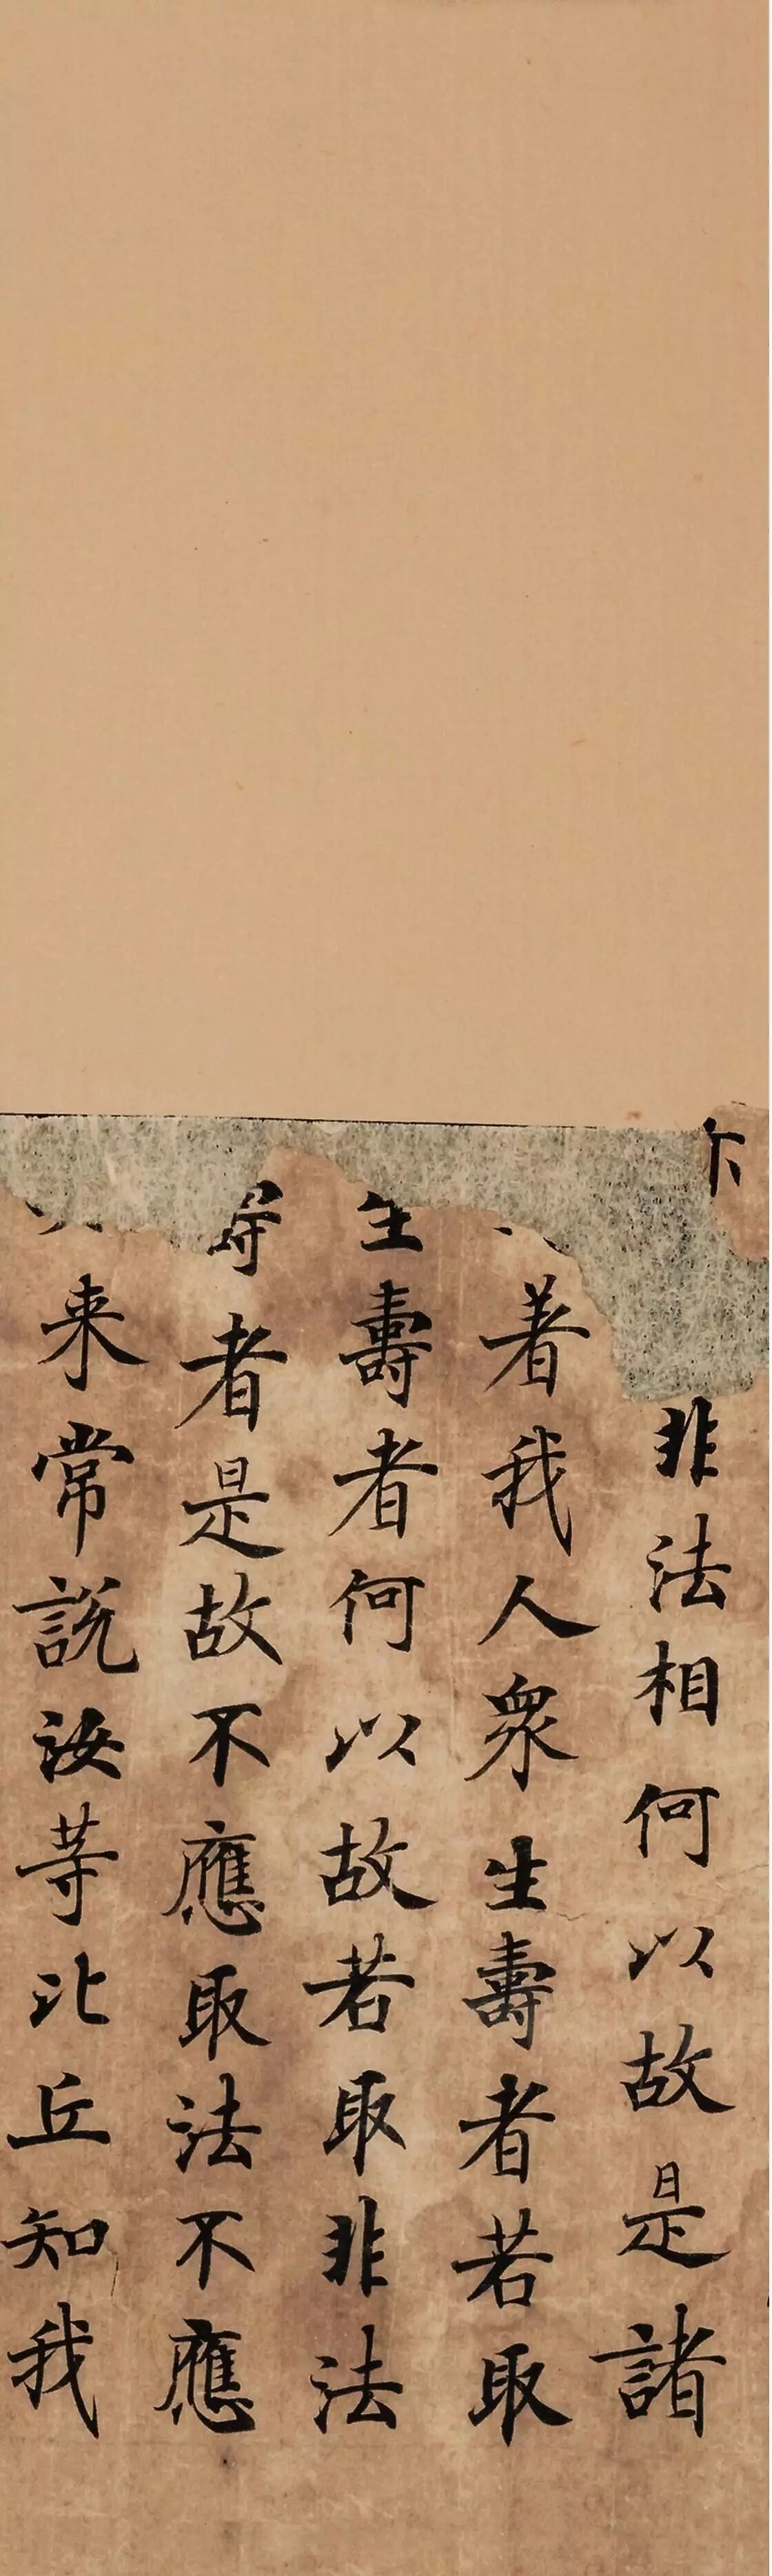 非法相何以故是諸
著我人衆生壽者若取
生壽者何以故若取非法
壽者是故不應取法不應
来常說汝等比丘知我